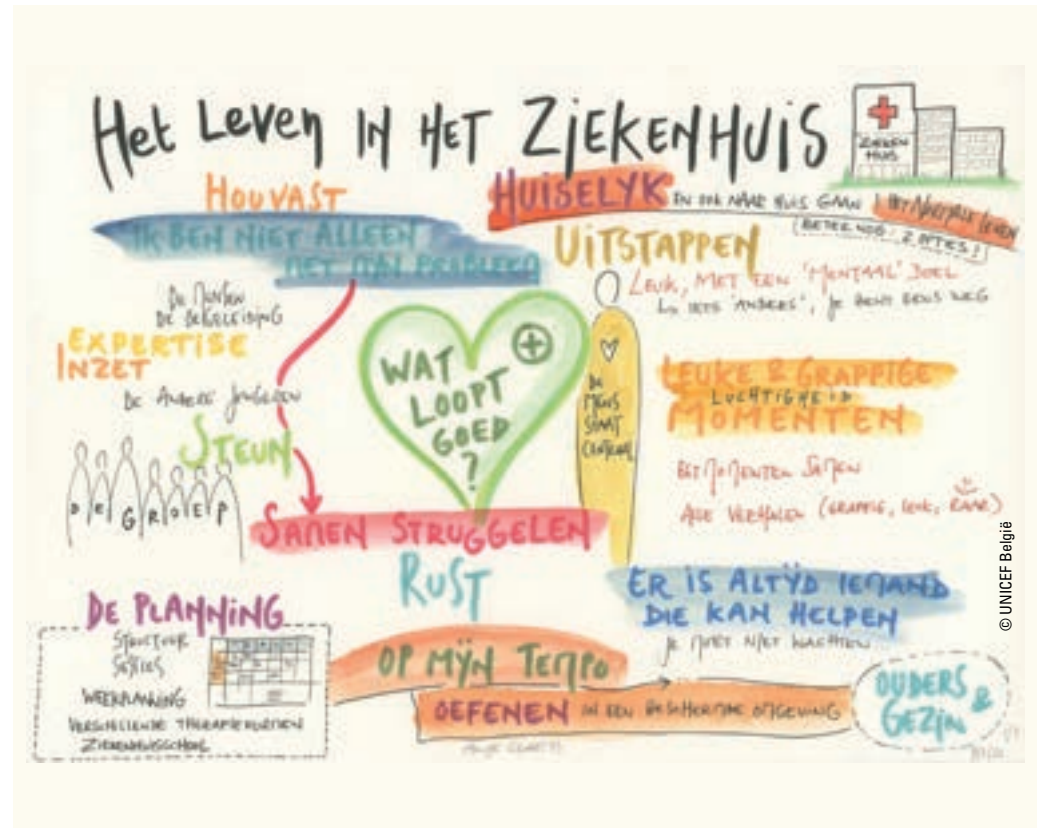 Het Leven IN HET ZIEKENHUIS
ZIEKEN
HUIS
HOUVAST
IK BEN NIET ALLEEN
MET MIJN PROBLEEM
HUISELYK EN OOK NAAR HUIS GAAN HET NORMALE LEVEN
(BETER NOG: 2 OPTIES!)
UITSTAPPEN
LEUK, MET EEN 'MENTAAL' DOEL
IETS 'ANDERS', JE BENT EENS WEG
DE MENSEN
DE BEGELEIDING
EXPERTISE
INZET
DE ANDERE JONGEREN
STEUN
DE GROEP
WAT
LOOPT
GOED
?
DE
MENS
STAAT
CENTRAAL
LEUKE & GRAPPIGE
LUCHTIGHEID
MOMENTEN
EETMOMENTEN SAMEN
ALLE VERHALEN (GRAPPIG, LEUK, RAAR)
SAMEN STRUGGELEN
RUST
ER IS ALTYD IEMAND
DIE KAN HELPEN
JE MOET NIET WACHTEN
DE PLANNING
STRUCTUUR
SESSIES
WEEKPLANNING
VERSCHILLENDE THERAPIEVORMEN
ZIEKENHUISSCHOOL
OP MYN TEMPO
OEFENEN IN EEN BESCHERMDE OMGEVING
OUDERS
&
GEZIN
© UNICEF België